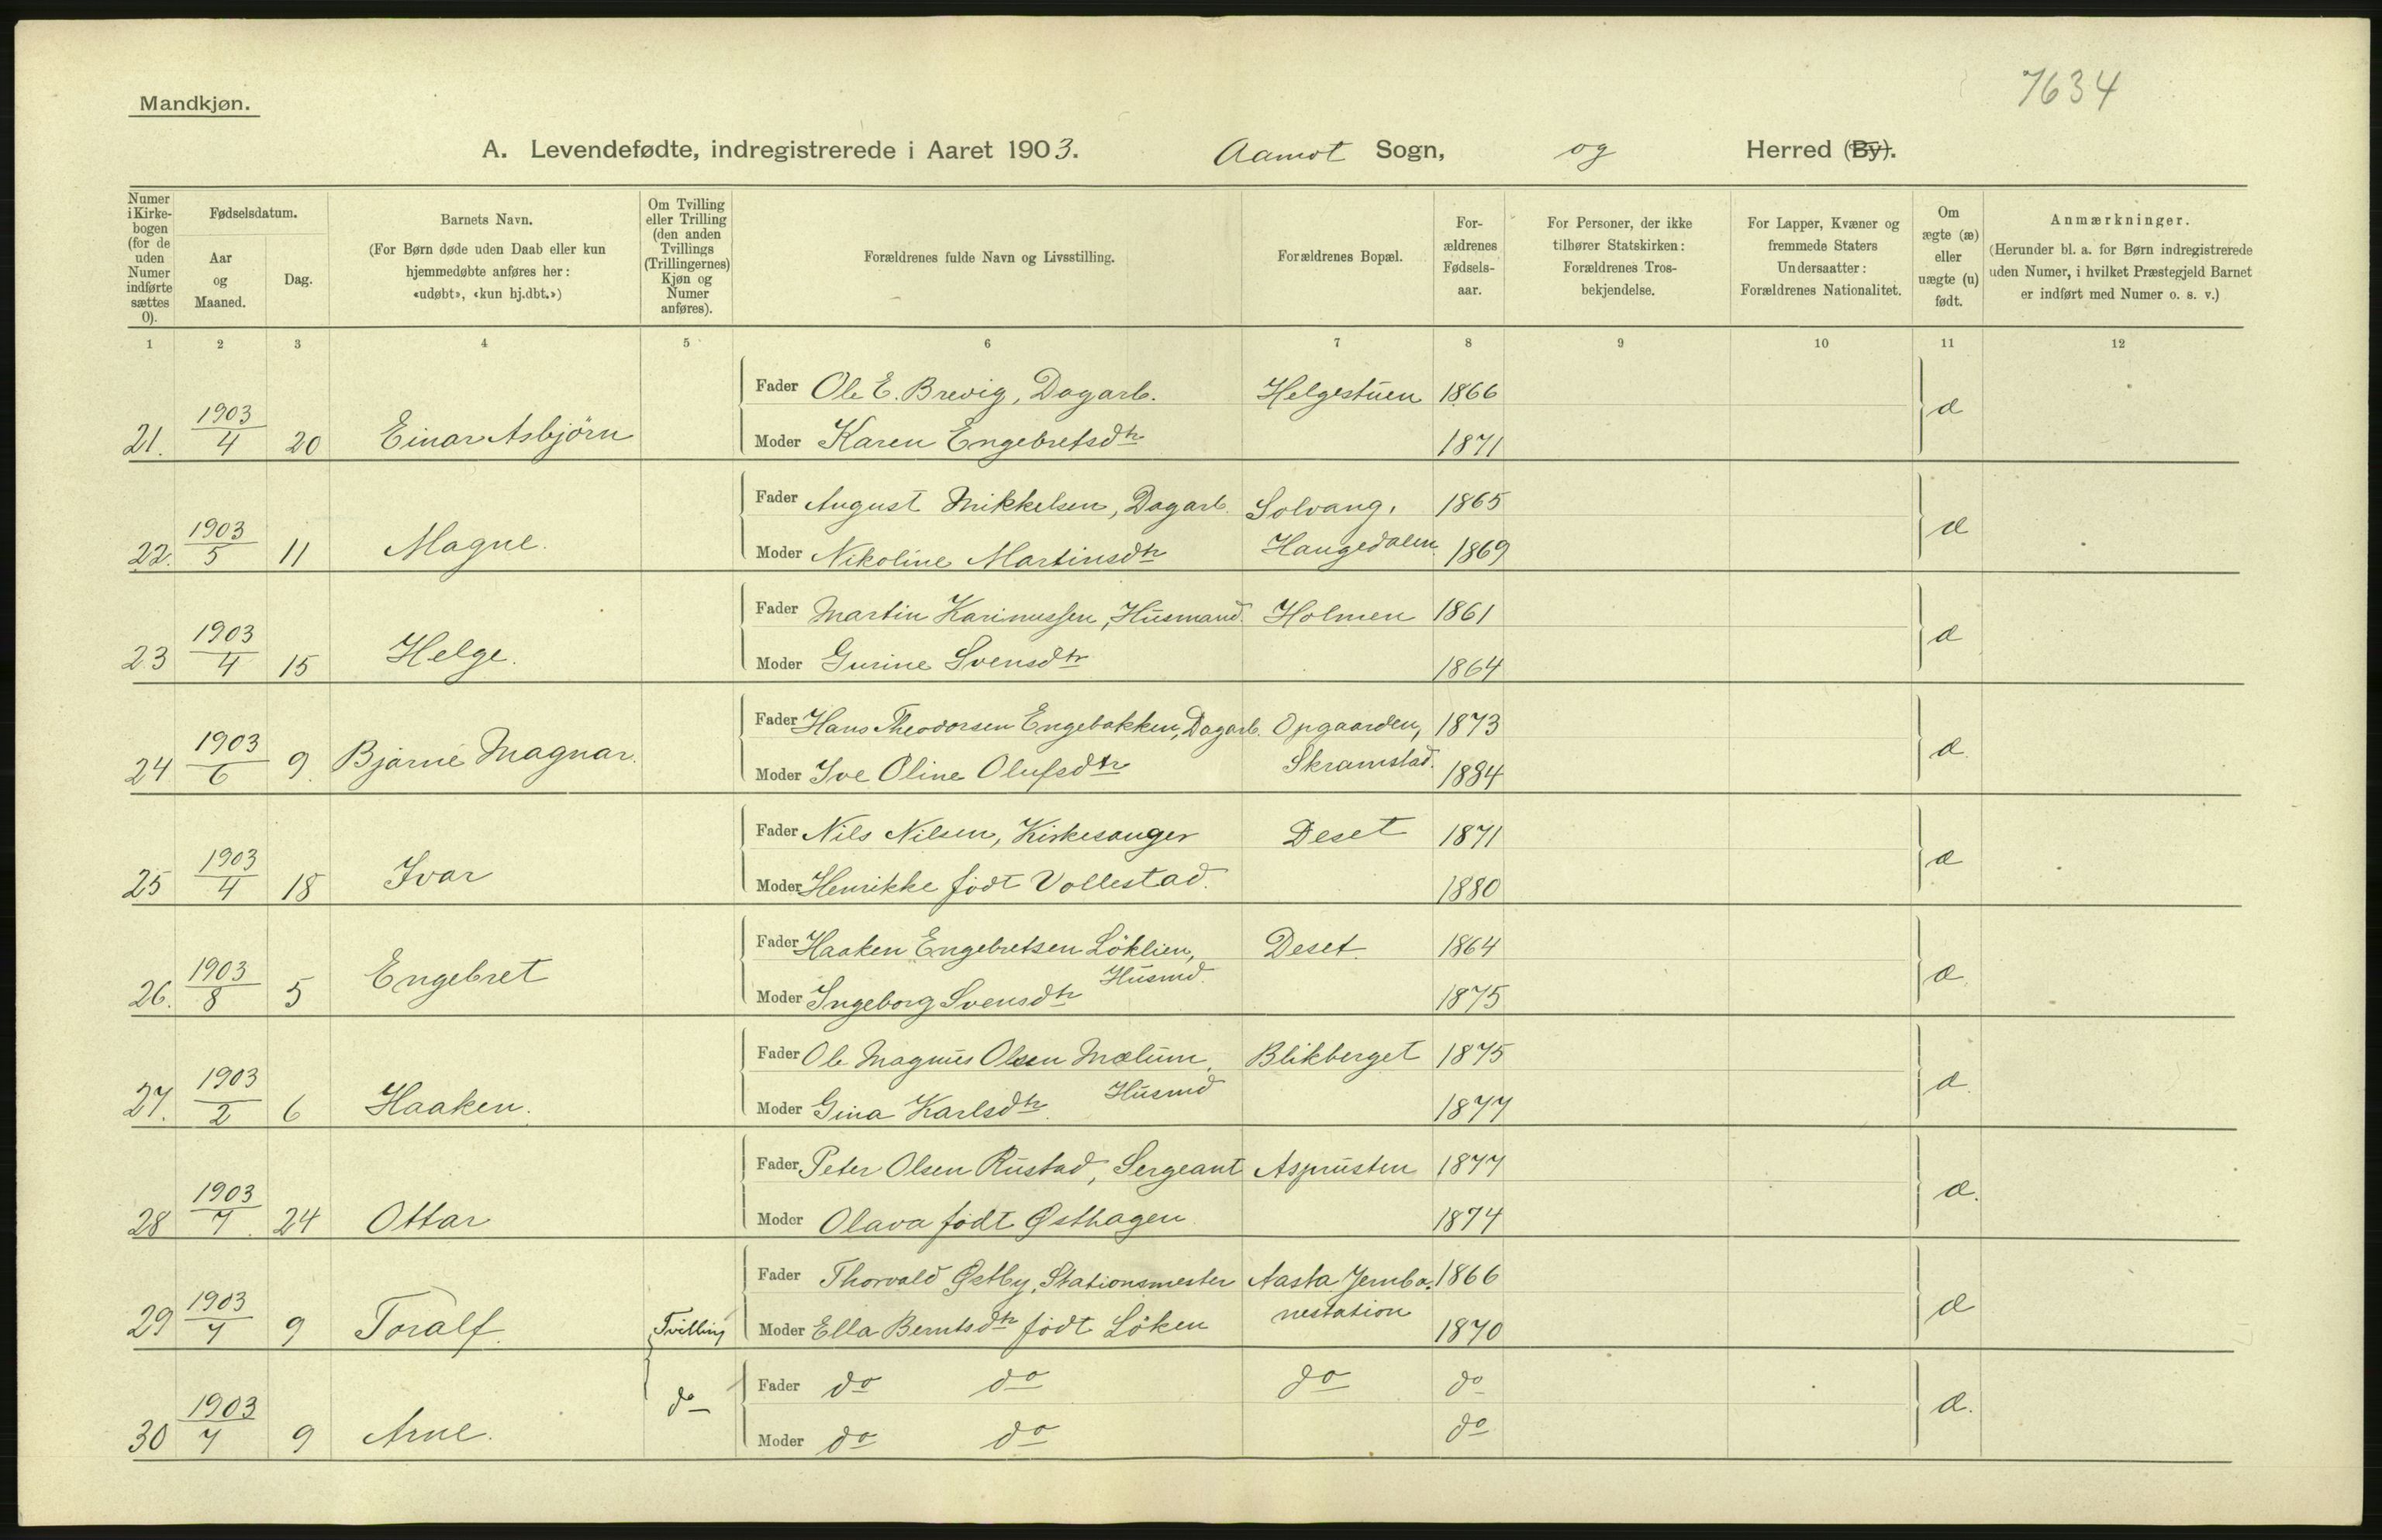 Mandkjøn.
7634
A. Levendefødte, indregistrerede i Aaret 1903. Aamot Sogn, og Herred (By).
Numer i Kirke-bogen (for de uden Numer indførte sættes 0).
Fødselsdatum.
Aar og Maaned.
Dag.
Barnets Navn.
(For Børn døde uden Daab eller kun
hjemmedøbte anføres her:
«udøbt», «kun hj.dbt.»)
Om Tvilling eller Trilling (den anden Tvillings (Trillingernes) Kjøn og Numer anføres).
Forældrenes fulde Navn og Livsstilling.
Forældrenes Bopæl.
For-ældrenes Fødsels-aar.
For Personer, der ikke
tilhører Statskirken:
Forældrenes Tros-
bekjendelse.
For Lapper, Kvæner og
fremmede Staters
Undersaatter:
Forældrenes Nationalitet.
Om ægte (æ) eller uægte (u) født.
Anmærkninger.
(Herunder bl. a. for Børn indregistrerede
uden Numer, i hvilket Præstegjeld Barnet
er indført med Numer o. s. v.)
1 2 3 4 5 6 7 8 9 10 11 12
Fader Ole E. Brevig, Dagarb. Helgestuen 1866
21. 1903/4 20 Einar Asbjörn æ
Moder Karen Engebretsdtr 1871
Fader August Mikkelsen, Dagarb. Solvang, 1865
22. 1903/5 11 Magne. æ
Moder Nikoline Martinsdtr Haugedalen. 1869
Fader Martin Karinussen, Husmand. Holmen 1861
23 1903/4 15 Helge. æ
Moder Gurine Svensdtr 1864
Fader Hans Theodorsen Engebakken, Dagarb. Opgaarden, 1873
24 1903/6 9. Bjarne Magnar. æ.
Moder Ive Oline Olufsdtr Skramstad. 1884
Fader Nils Nilsen, Kirkesanger Deset 1871
25 1903/4 18 Ivar æ
Moder Henrikke födt Vollestad. 1880
Fader Haaken Engebretsen Löklien, Husmd. Deset. 1864
26. 1903/8 5 Engebret æ.
Moder Ingeborg Svensdtr 1875
Fader Ole Magnus Olsen Mælum, Husmd Blikberget 1875
27. 1903/2 6 Haaken. æ.
Moder Gina Karlsdtr. 1877
Fader Peter Olsen Rustad, Sergeant Asprusten 1877
28 1903/7. 24 Ottar æ.
Moder Olava födt Østhagen 1874
Fader Thorvald Østby, Stationsmester Aasta Jernba- 1866
29 1903/7 9 Toralf. Tvilling æ
Moder Ella Berntsdtr födt Löken nestation 1870
Fader do do do do
30 1903/7 9 Arne. do æ.
Moder do do do